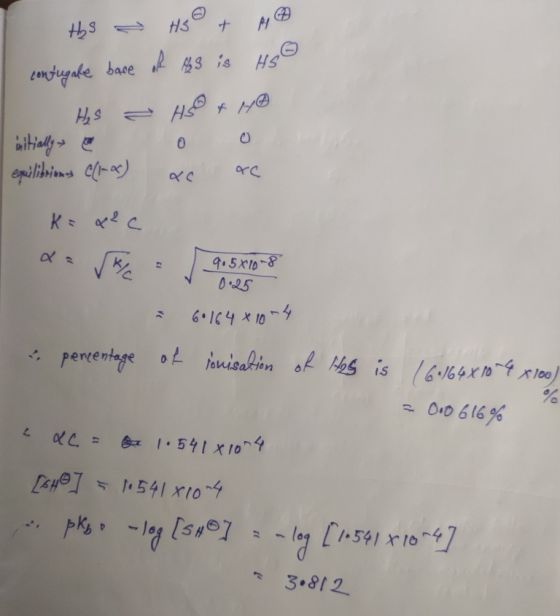 H₂S ⇌ HS⊖ + H⊕
conjugate base of H₂S is HS⊖
H₂S ⇌ HS⊖ + H⊕
initially→ C 0 0
equilibrium→ C(1-α) αC αC
K = α² C
α = √K/C = √(9.5×10⁻⁸/0.25)
= 6.164 ×10⁻⁴
∴ percentage of ionisation of H₂S is (6.164×10⁻⁴ ×100)%
= 0.0616%
∴ αC = 1.541 ×10⁻⁴
[SH⊖] = 1.541 ×10⁻⁴
∴ pKb = -log [SH⊖] = -log [1.541 ×10⁻⁴]
= 3.812